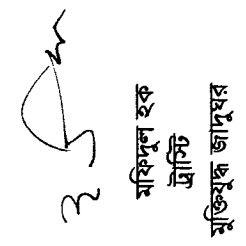 মফিদুল হক
ট্রাস্টি
মুক্তিযুদ্ধ জাদুঘর